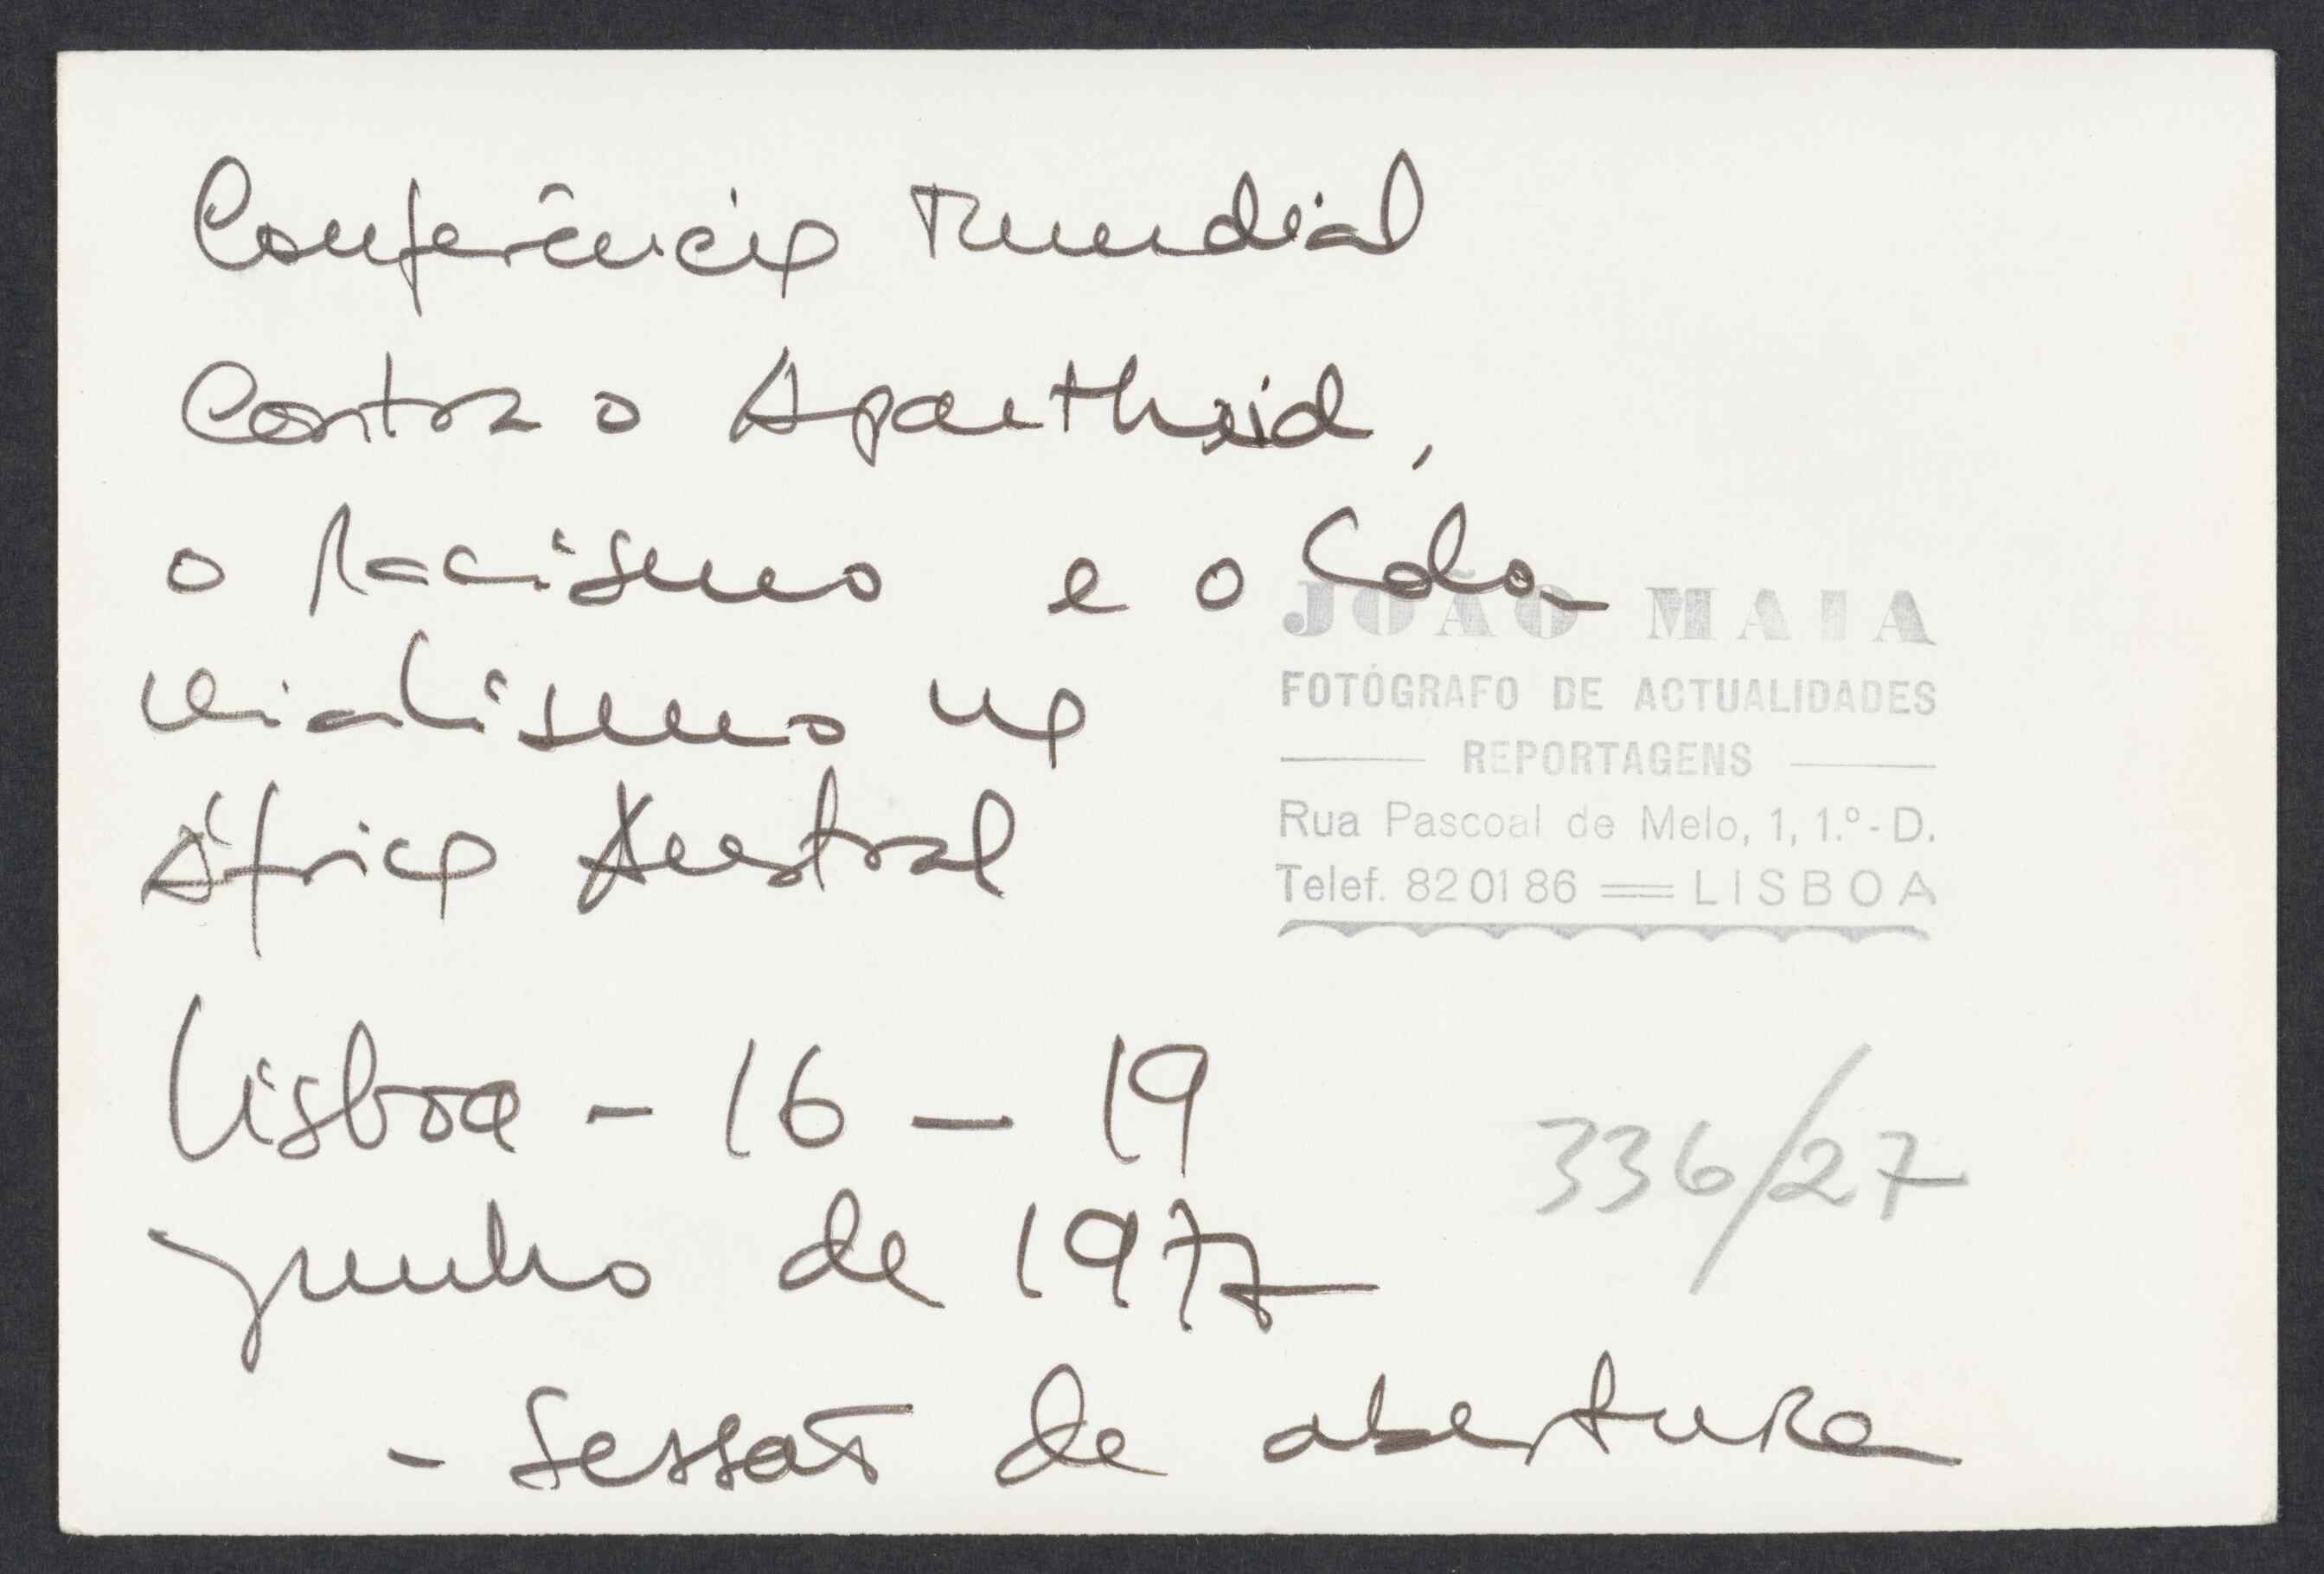 Conferência Mundial
Contra o Apartheid,
o Racismo e o Colo-
nialismo na
África Austral
Lisboa - 16 - 19
junho de 1977
- Sessão de abertura
JOÃO MAIA
FOTÓGRAFO DE ACTUALIDADES
REPORTAGENS
Rua Pascoal de Melo, 1, 1.º-D.
Telef. 82 01 86 = LISBOA
336/27